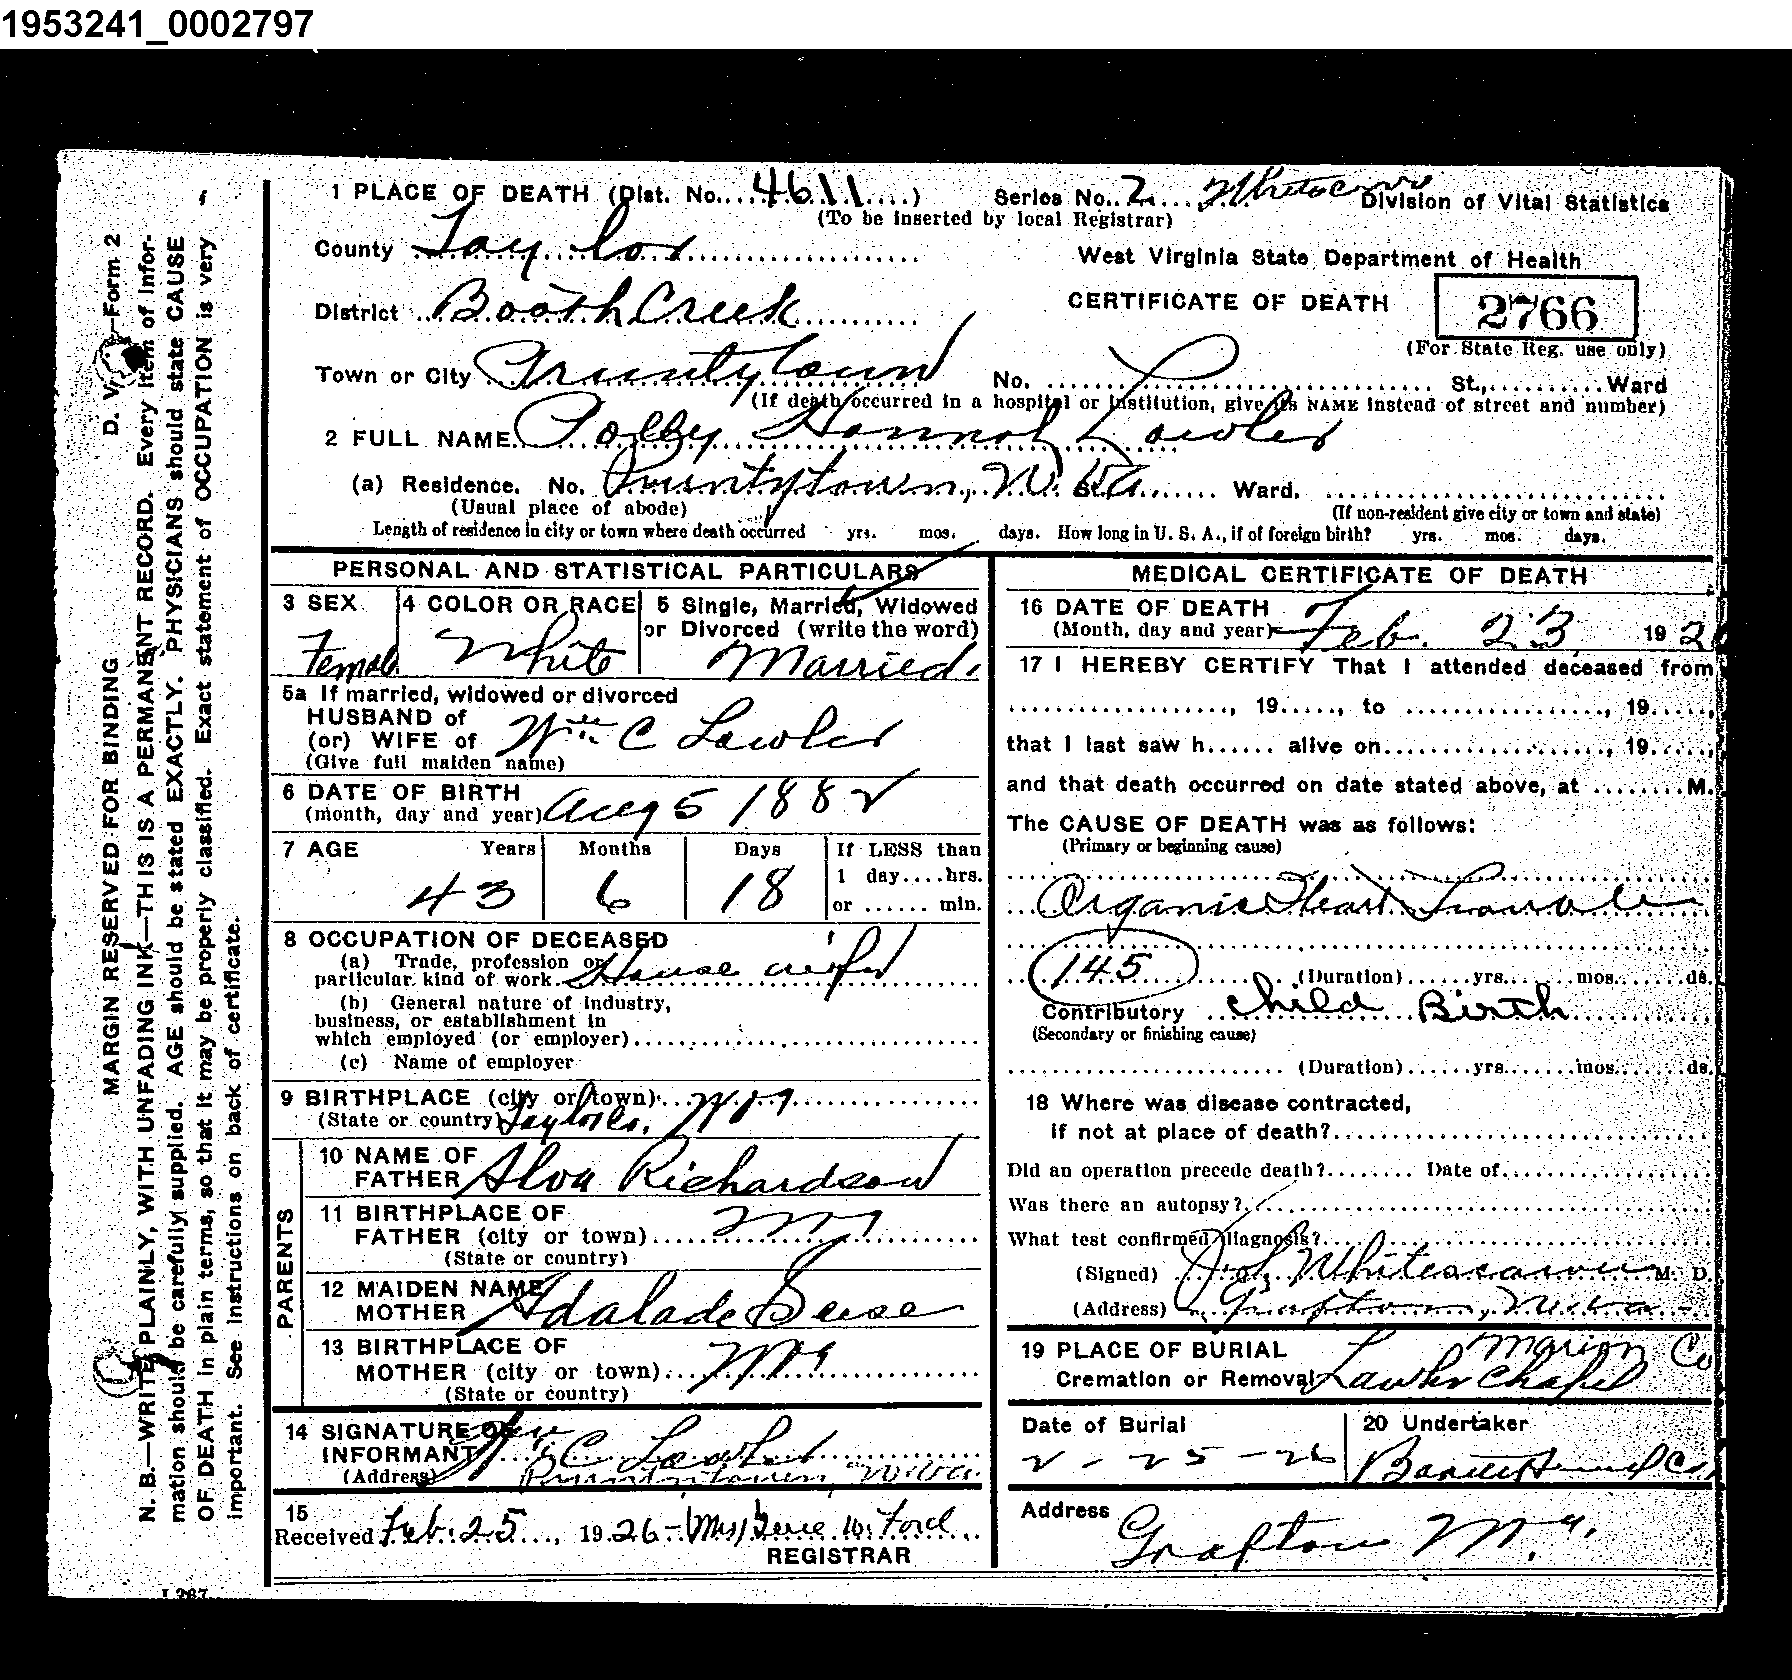 1953241_0002797
1 PLACE OF DEATH (Dist. No. 4611) Series No. 2 Division of Vital Statistics
(To be inserted by local Registrar)
County Taylor West Virginia State Department of Health
District Booth Creek CERTIFICATE OF DEATH 2766
(For State Reg. use only)
Town or City Pruntytown No. St., Ward
(If death occurred in a hospital or institution, give its NAME instead of street and number)
2 FULL NAME Polly Hannah Lawler
(a) Residence. No. Pruntytown, W. Va. St. Ward.
(Usual place of abode) (If non-resident give city or town and state)
Length of residence in city or town where death occurred yrs. mos. days. How long in U. S. A., if of foreign birth? yrs. mos. days.
PERSONAL AND STATISTICAL PARTICULARS
3 SEX 4 COLOR OR RACE 5 Single, Married, Widowed
or Divorced (write the word)
Female White Married.
5a If married, widowed or divorced
HUSBAND of
(or) WIFE of Wm C Lawler
(Give full maiden name)
6 DATE OF BIRTH
(month, day and year) Aug 5 1882
7 AGE Years Months Days If LESS than
1 day....hrs.
43 6 18 or ...... min.
8 OCCUPATION OF DECEASED
(a) Trade, profession or
particular kind of work House wife
(b) General nature of industry,
business, or establishment in
which employed (or employer)
(c) Name of employer
9 BIRTHPLACE (city or town)
(State or country) Taylor Co. W Va
PARENTS
10 NAME OF
FATHER Alva Richardson
11 BIRTHPLACE OF
FATHER (city or town)
(State or country)
12 MAIDEN NAME
MOTHER Adalade
13 BIRTHPLACE OF
MOTHER (city or town)
(State or country)
14 SIGNATURE OF
INFORMANT Wm C Lawler
(Address) Pruntytown, W. Va.
15
Received Feb. 25, 1926 - Mrs W. Ford
REGISTRAR
MEDICAL CERTIFICATE OF DEATH
16 DATE OF DEATH
(Month, day and year) Feb. 23, 192
17 I HEREBY CERTIFY That I attended deceased from
, 19....., to , 19.....,
that I last saw h...... alive on , 19.....,
and that death occurred on date stated above, at ........M.
The CAUSE OF DEATH was as follows:
(Primary or beginning cause)
Organic Heart Trouble
145 (Duration)......yrs.......mos.......ds.
Contributory Child Birth
(Secondary or finishing cause)
(Duration)......yrs.......mos.......ds.
18 Where was disease contracted,
if not at place of death?
Did an operation precede death?........ Date of
Was there an autopsy?
What test confirmed diagnosis?
(Signed) Whitescarver M. D.
(Address) Grafton, W. Va.
19 PLACE OF BURIAL Marion Co
Cremation or Removal Lawler Chapel
Date of Burial 20 Undertaker
2 - 25 - 26
Address Grafton W. Va.
D. V. S.—Form 2
MARGIN RESERVED FOR BINDING
N. B.—WRITE PLAINLY, WITH UNFADING INK—THIS IS A PERMANENT RECORD. Every item of infor-
mation should be carefully supplied. AGE should be stated EXACTLY. PHYSICIANS should state CAUSE
OF DEATH in plain terms, so that it may be properly classified. Exact statement of OCCUPATION is very
important. See instructions on back of certificate.